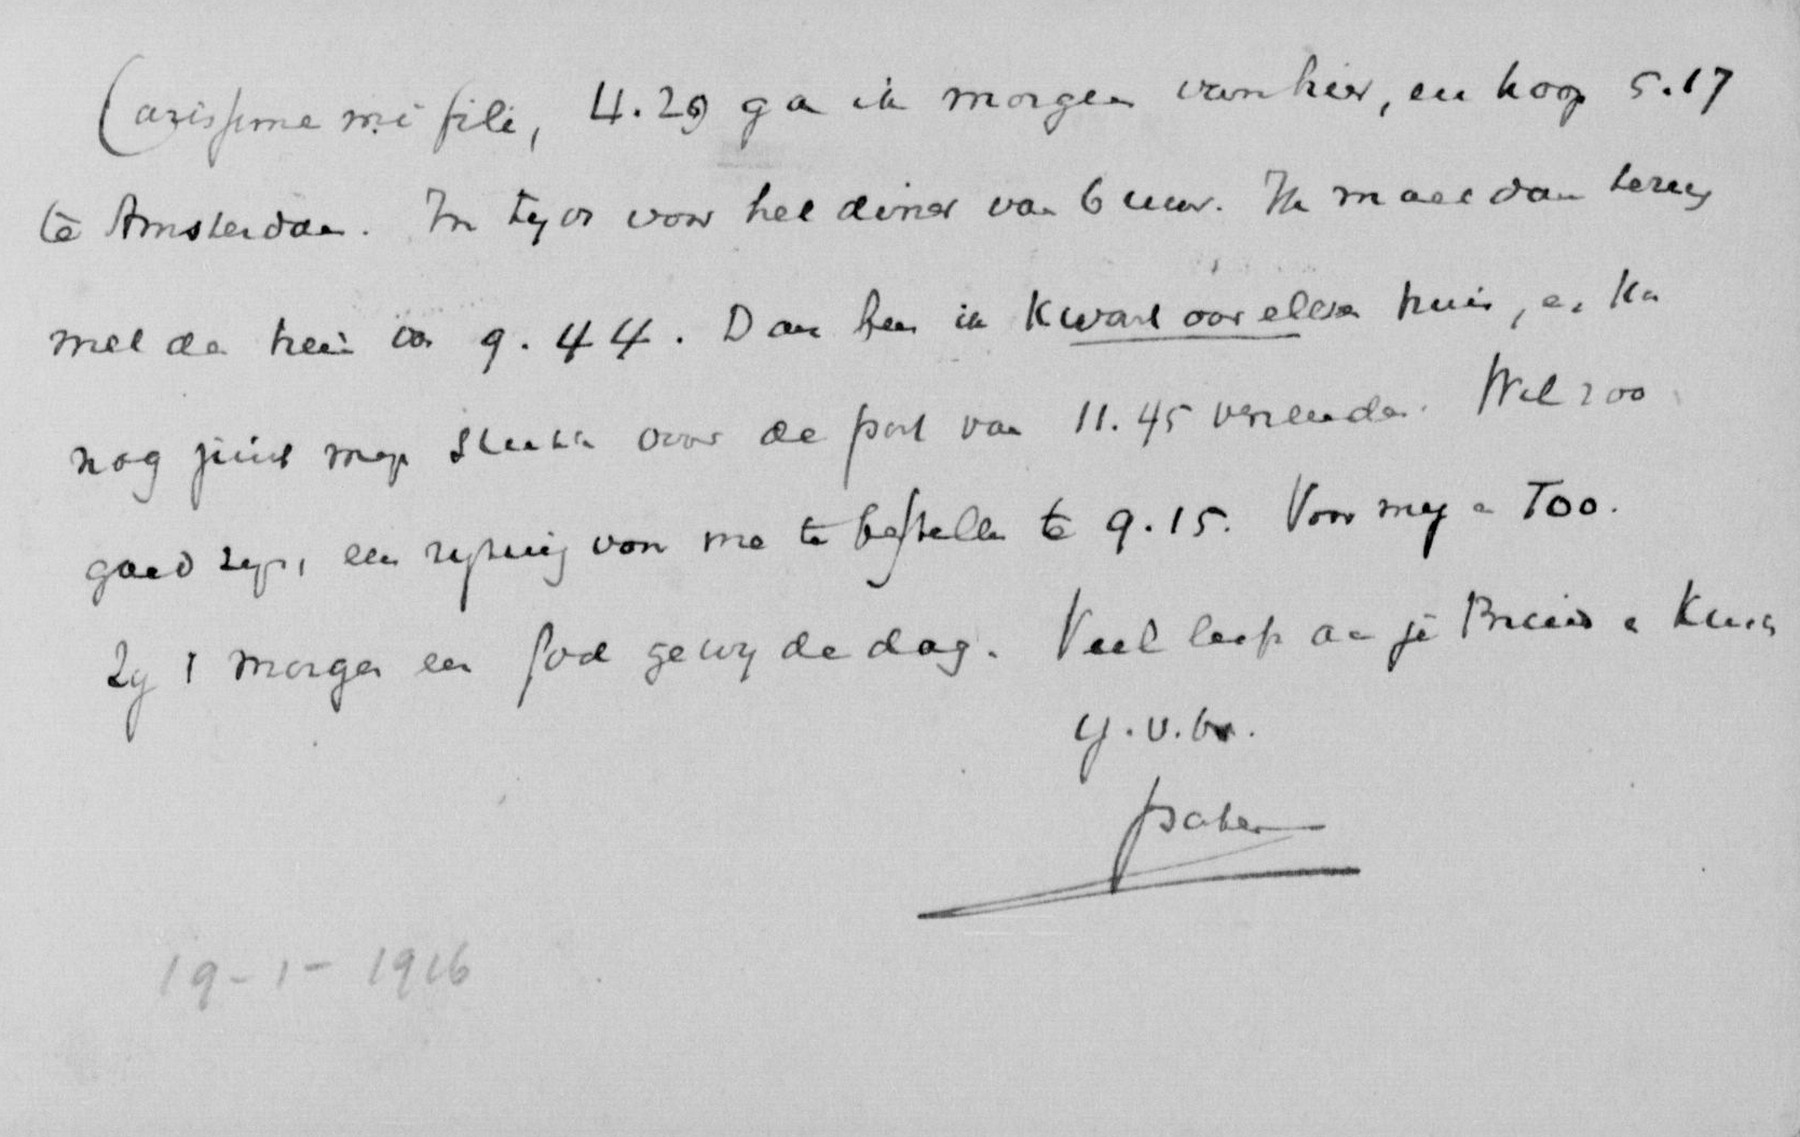 Carissime mi fili, 4.29 ga ik morgen van hier, en hoop 5.17
te Amsterdam. In tijds voor het diner van 6 uur. Ik moet dan terug
met de trein van 9.44. Dan ben ik kwart voor elf en huis, en kan
nog juist mijn stukken voor de post van 11.45 verzenden. Wil zoo
goed zijn, een rijtuig voor me te bestellen te 9.15. Voor mij en Too.
Zij 't morgen een God gewijde dag. Veel liefs aan je Bruid en Kus
y.v.br.
pater
19-1-1916